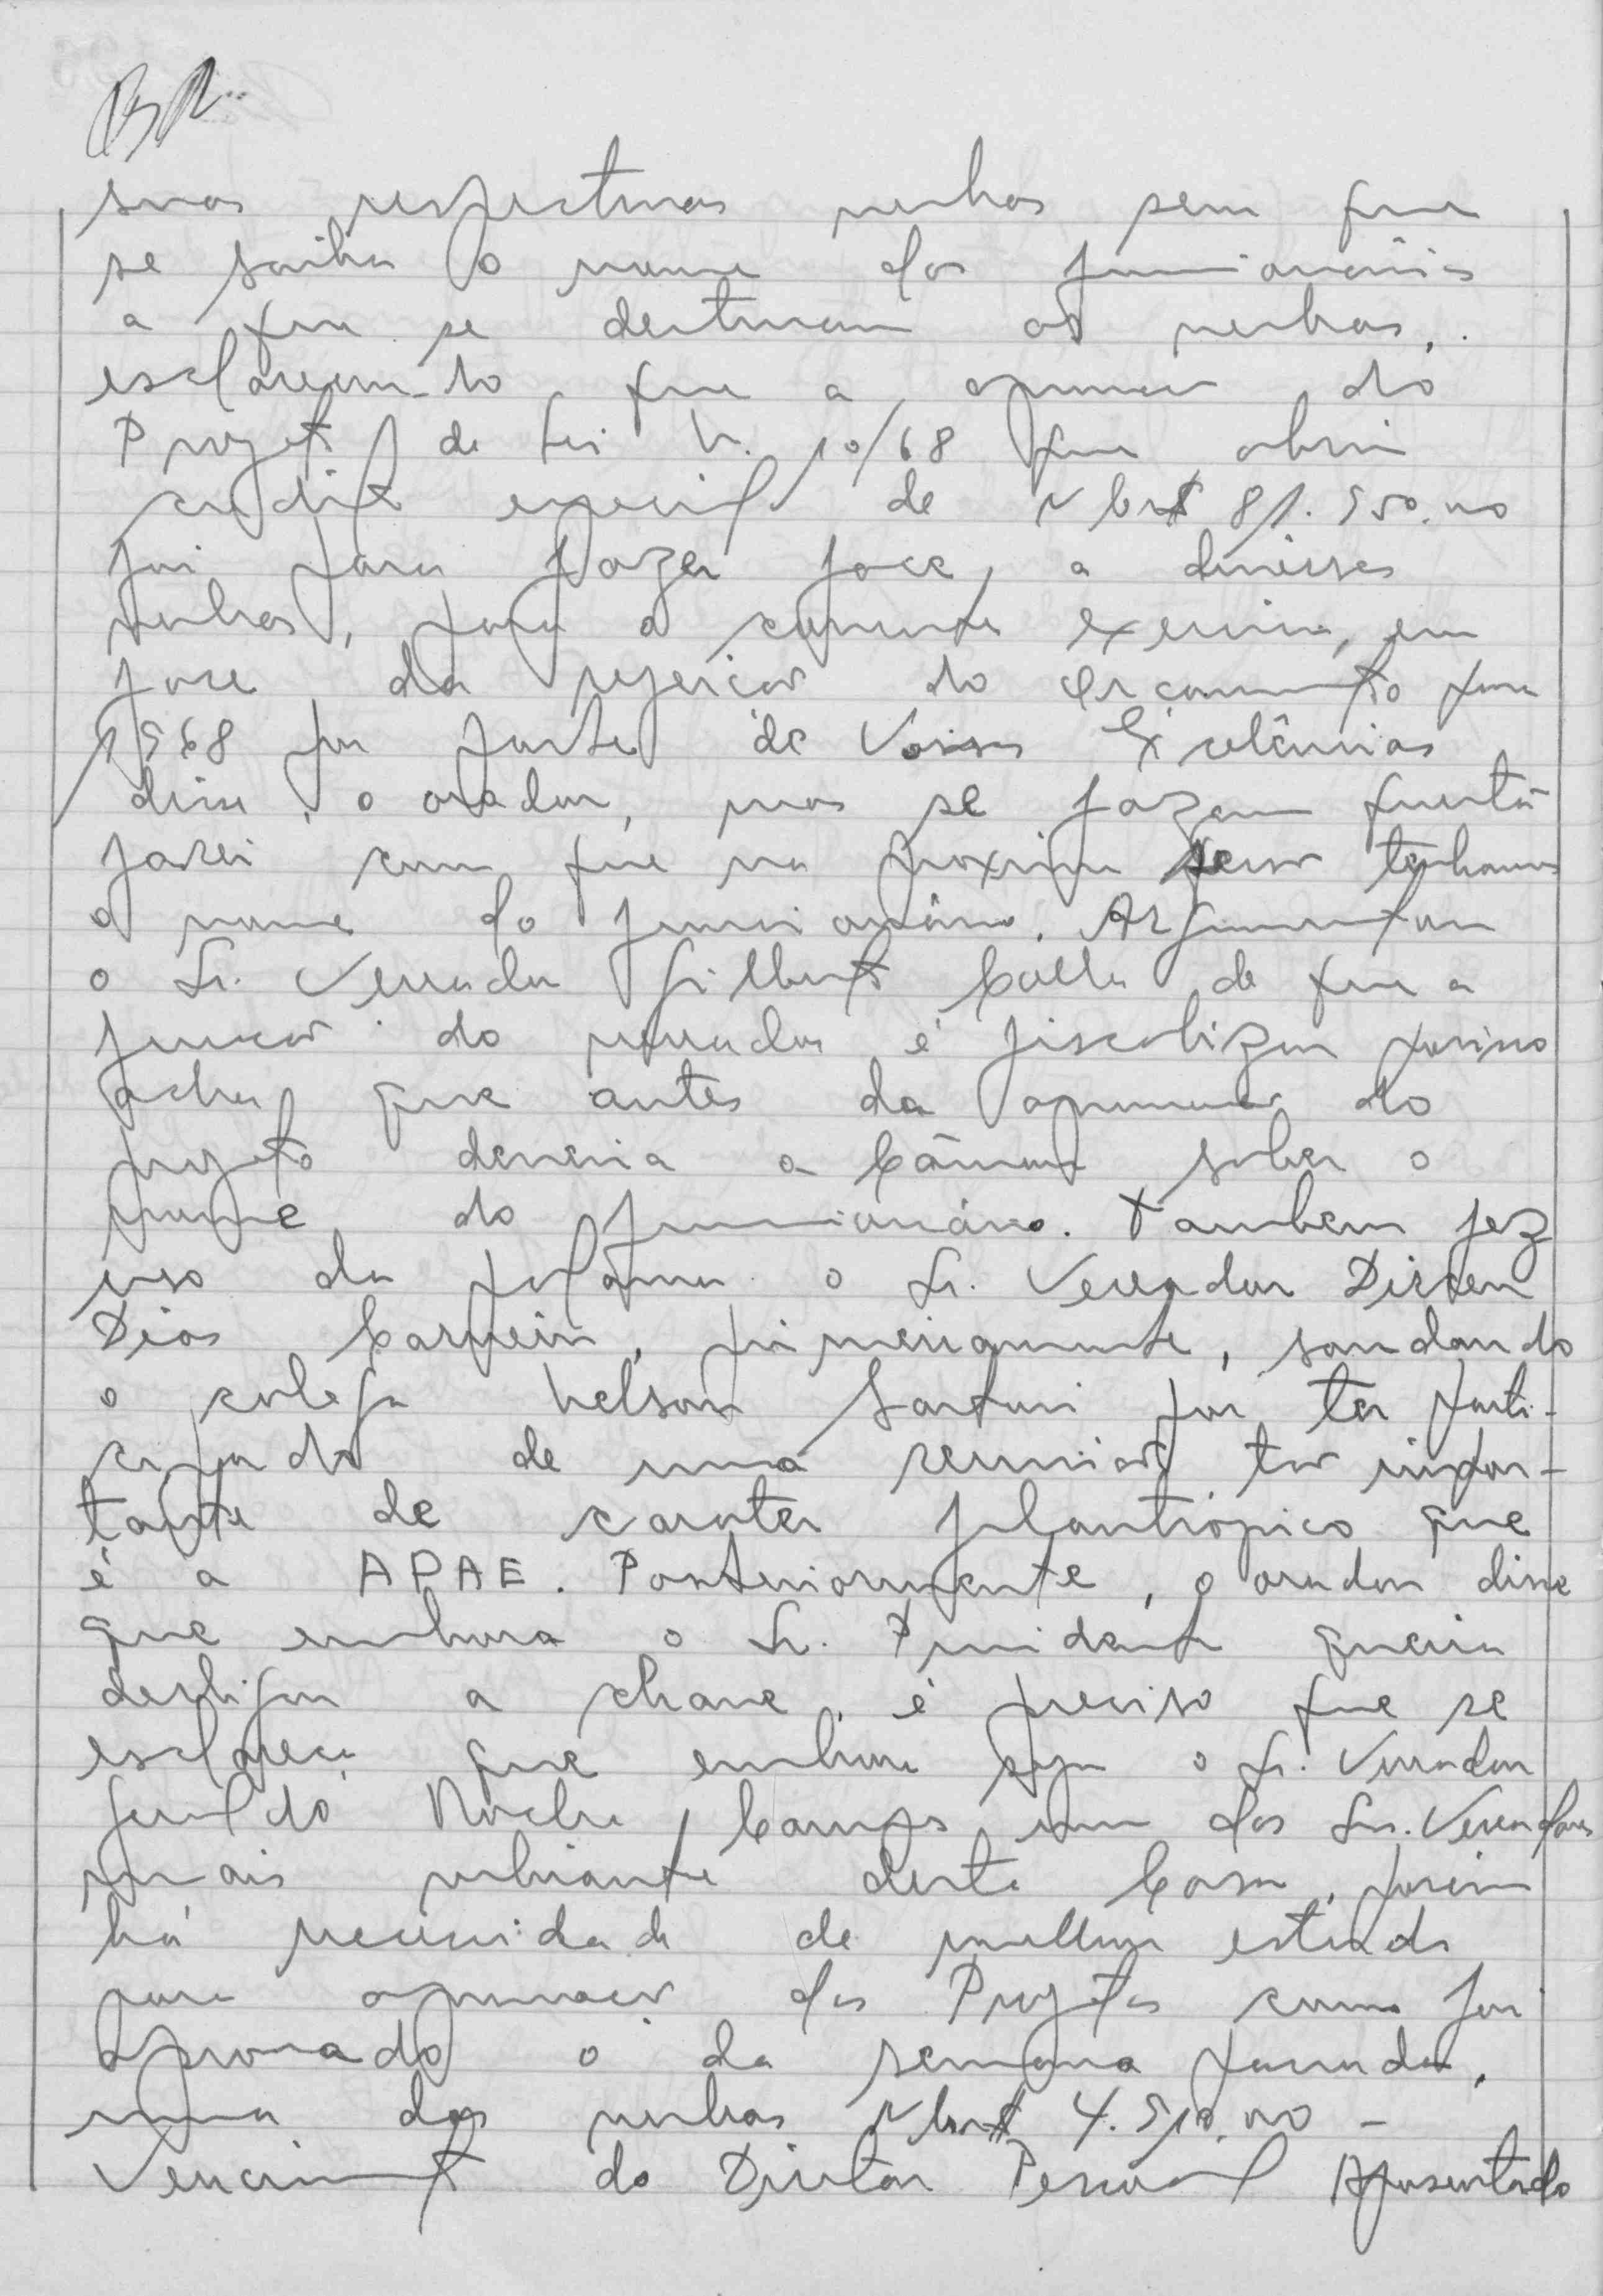 suas respectivas verbas sem que
se saiba o nome dos funcionários
a que se destinam as verbas,
esclarecendo que a aprovação do
Projeto de Lei N. 10/68 que abriu
credito especial de NCr$ 81.950,00
foi para fazer face, a diversas
verbas, para o corrente exercício, em
face da rejeição do orçamento para
1968 por parte de Vossas Excelências
disse o orador, mas se fazem questão
farei com que na proxima sessão tenhamos
o nome do funcionário. Argumentou
o Sr. Vereador Gilberto Calla de que a
função do vereador é fiscalizar por isso
acha que antes da aprovação do
projeto deveria a Câmara saber o
nome do funcionário. Tambem fez
uso da palavra o Sr. Vereador Dirceu
Dias Carneiro, primeiramente, saudando
o colega Nelson Sartori por ter parti-
cipado de uma reunião tão impor-
tante de carater filantrópico que
é a APAE. Posteriormente, o orador disse
que embora o Sr. Presidente queira
desligar a chave, é preciso que se
esclareça que embora seja o Sr. Vereador
Geraldo Rocha Campos um dos Srs. Vereadores
mais vibrante desta Casa, porém
há necessidade de melhor estudo
para aprovação dos Projetos como foi
aprovado o da semana passada,
uma das verbas NCr$ 4.510,00 -
Vencimento do Diretor Pessoal Aposentado